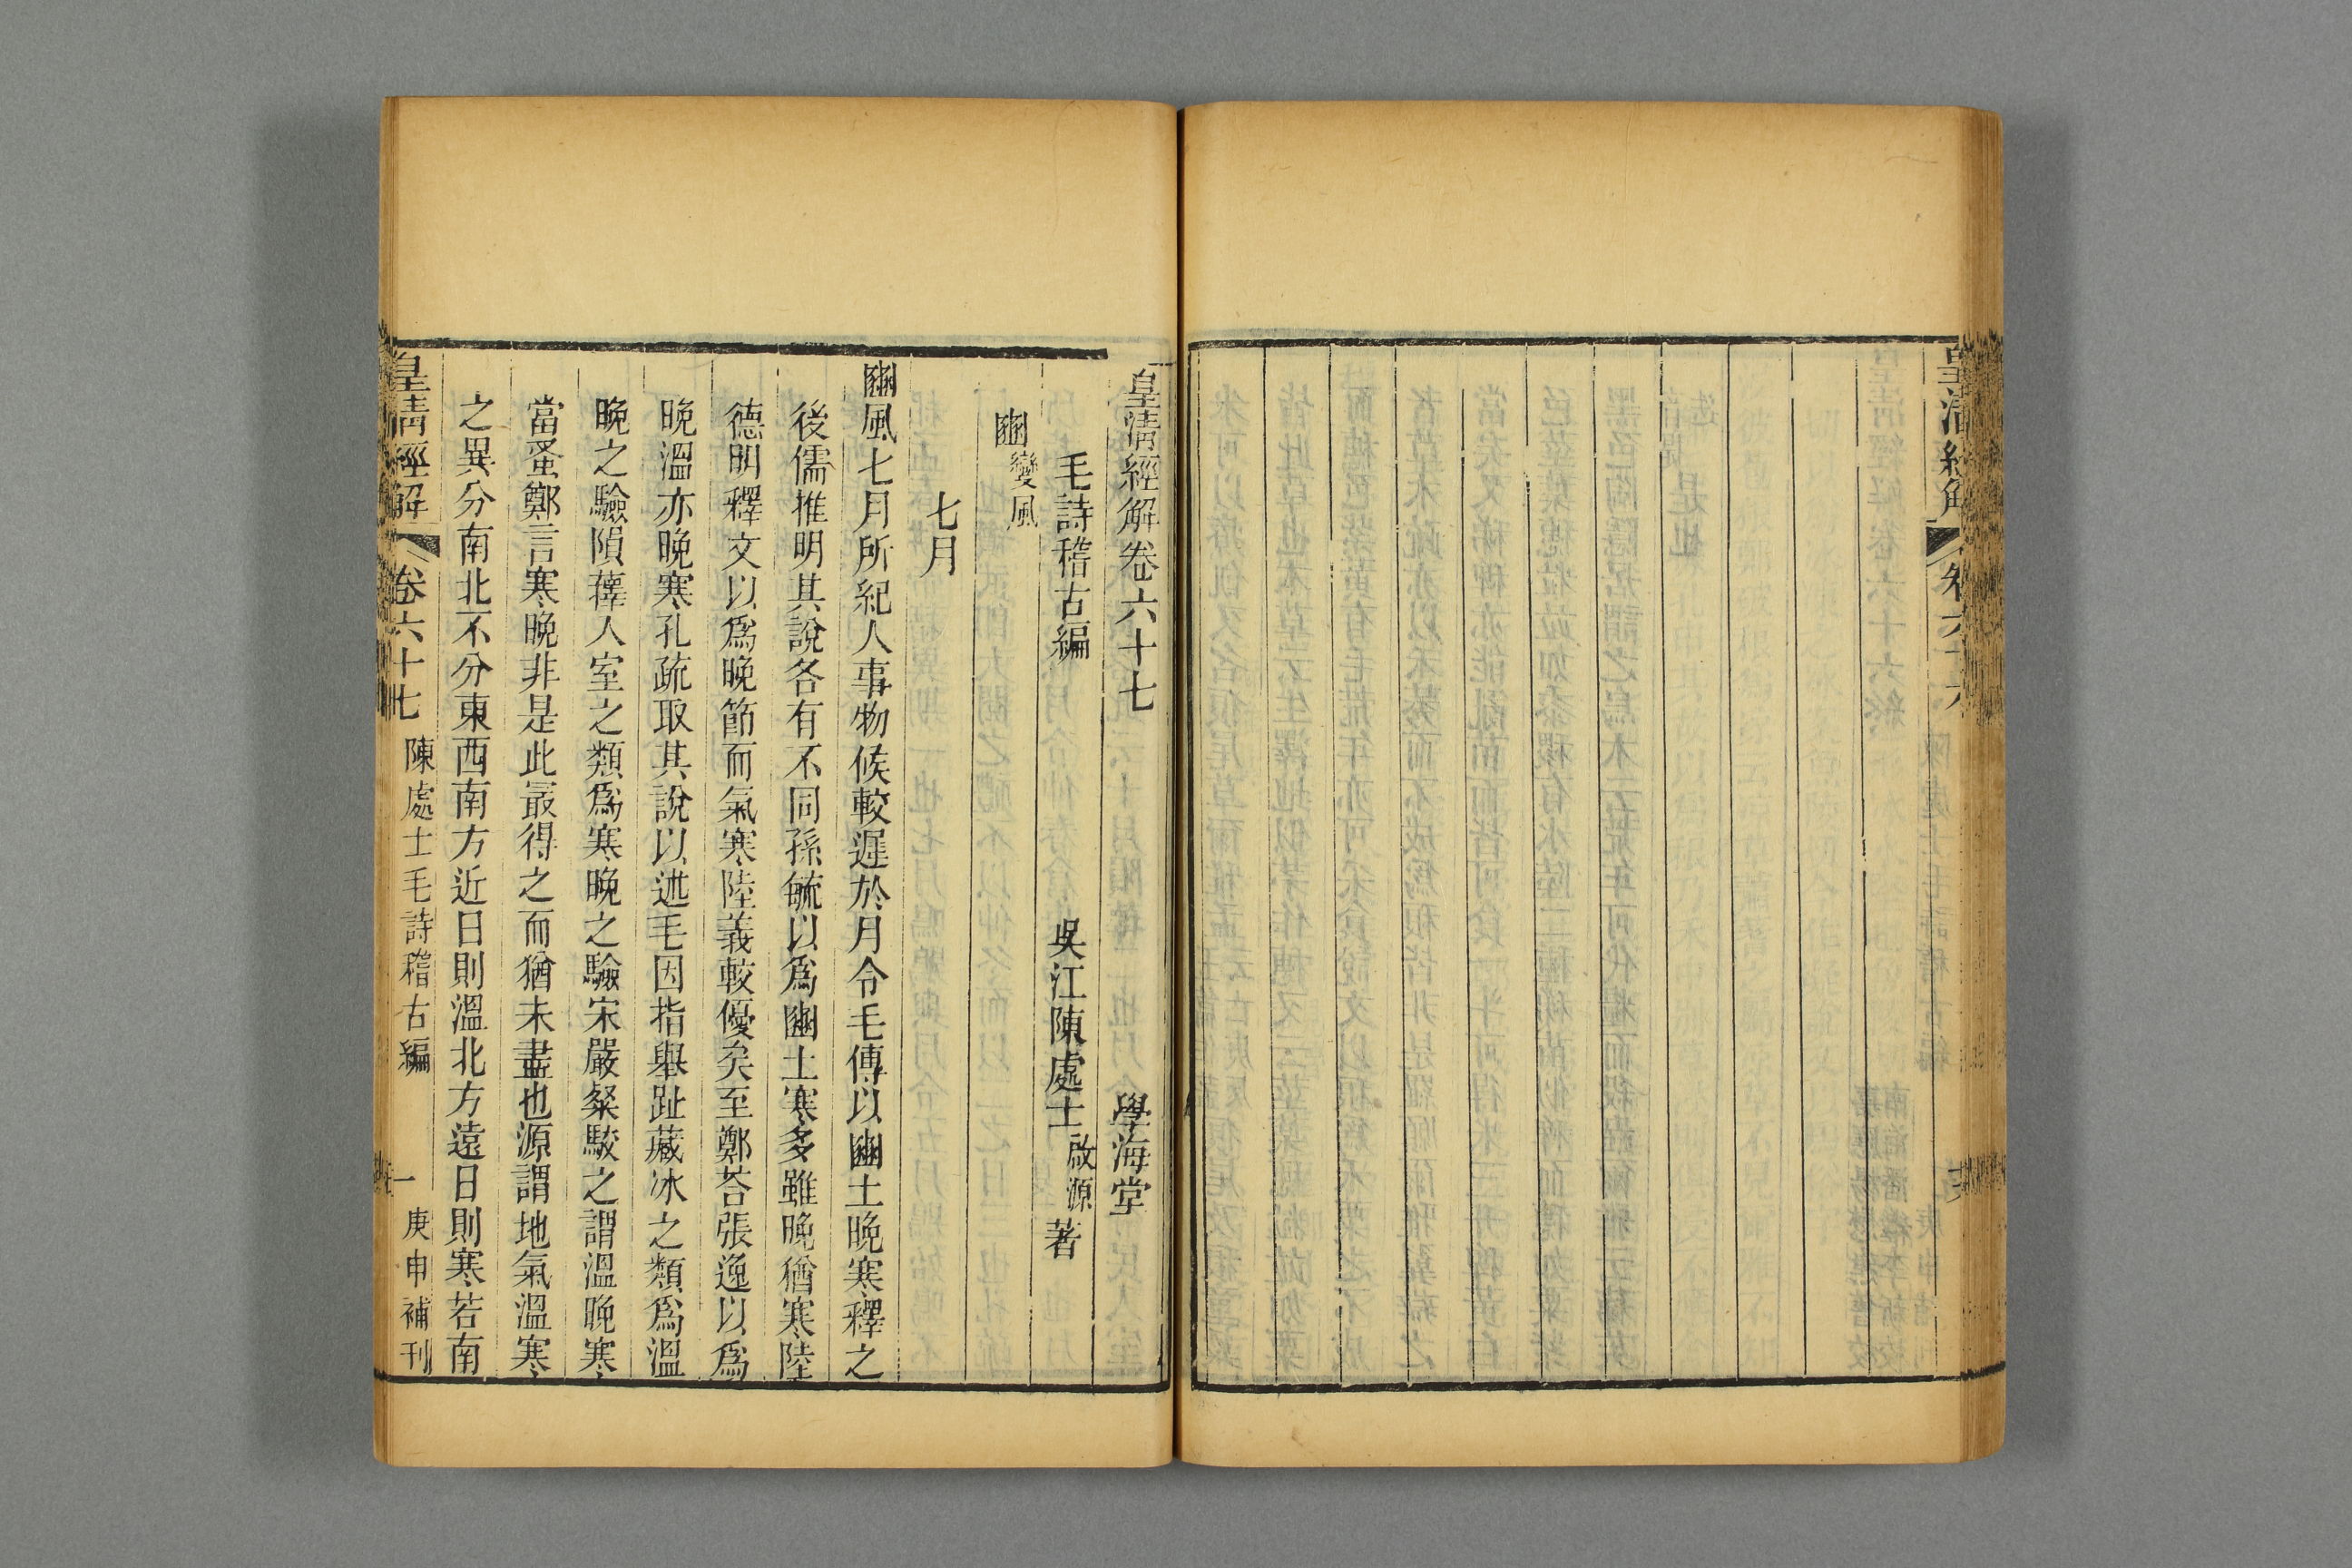 皇清經解
卷六十六
皇清經解卷六十七
學海堂
毛詩稽古編
吳江陳處士啟源著
豳變風
七月
豳風七月所紀人事物候較遲於月令毛傳以豳土晚寒釋之
後儒推明其說各有不同孫毓以爲豳土寒多雖晚猶寒陸
德明釋文以爲晚節而氣寒陸義較優矣至鄭荅張逸以爲
晚溫亦晚寒孔疏取其說以述毛因指舉趾藏冰之類爲溫
晚之驗隕蘀入室之類爲寒晚之驗宋嚴粲駮之謂溫晚寒
當蚤鄭言寒晚非是此最得之而猶未盡也源謂地氣溫寒
之異分南北不分東西南方近日則溫北方遠日則寒若南
皇清經解
卷六十七
陳處士毛詩稽古編
一
庚申補刊